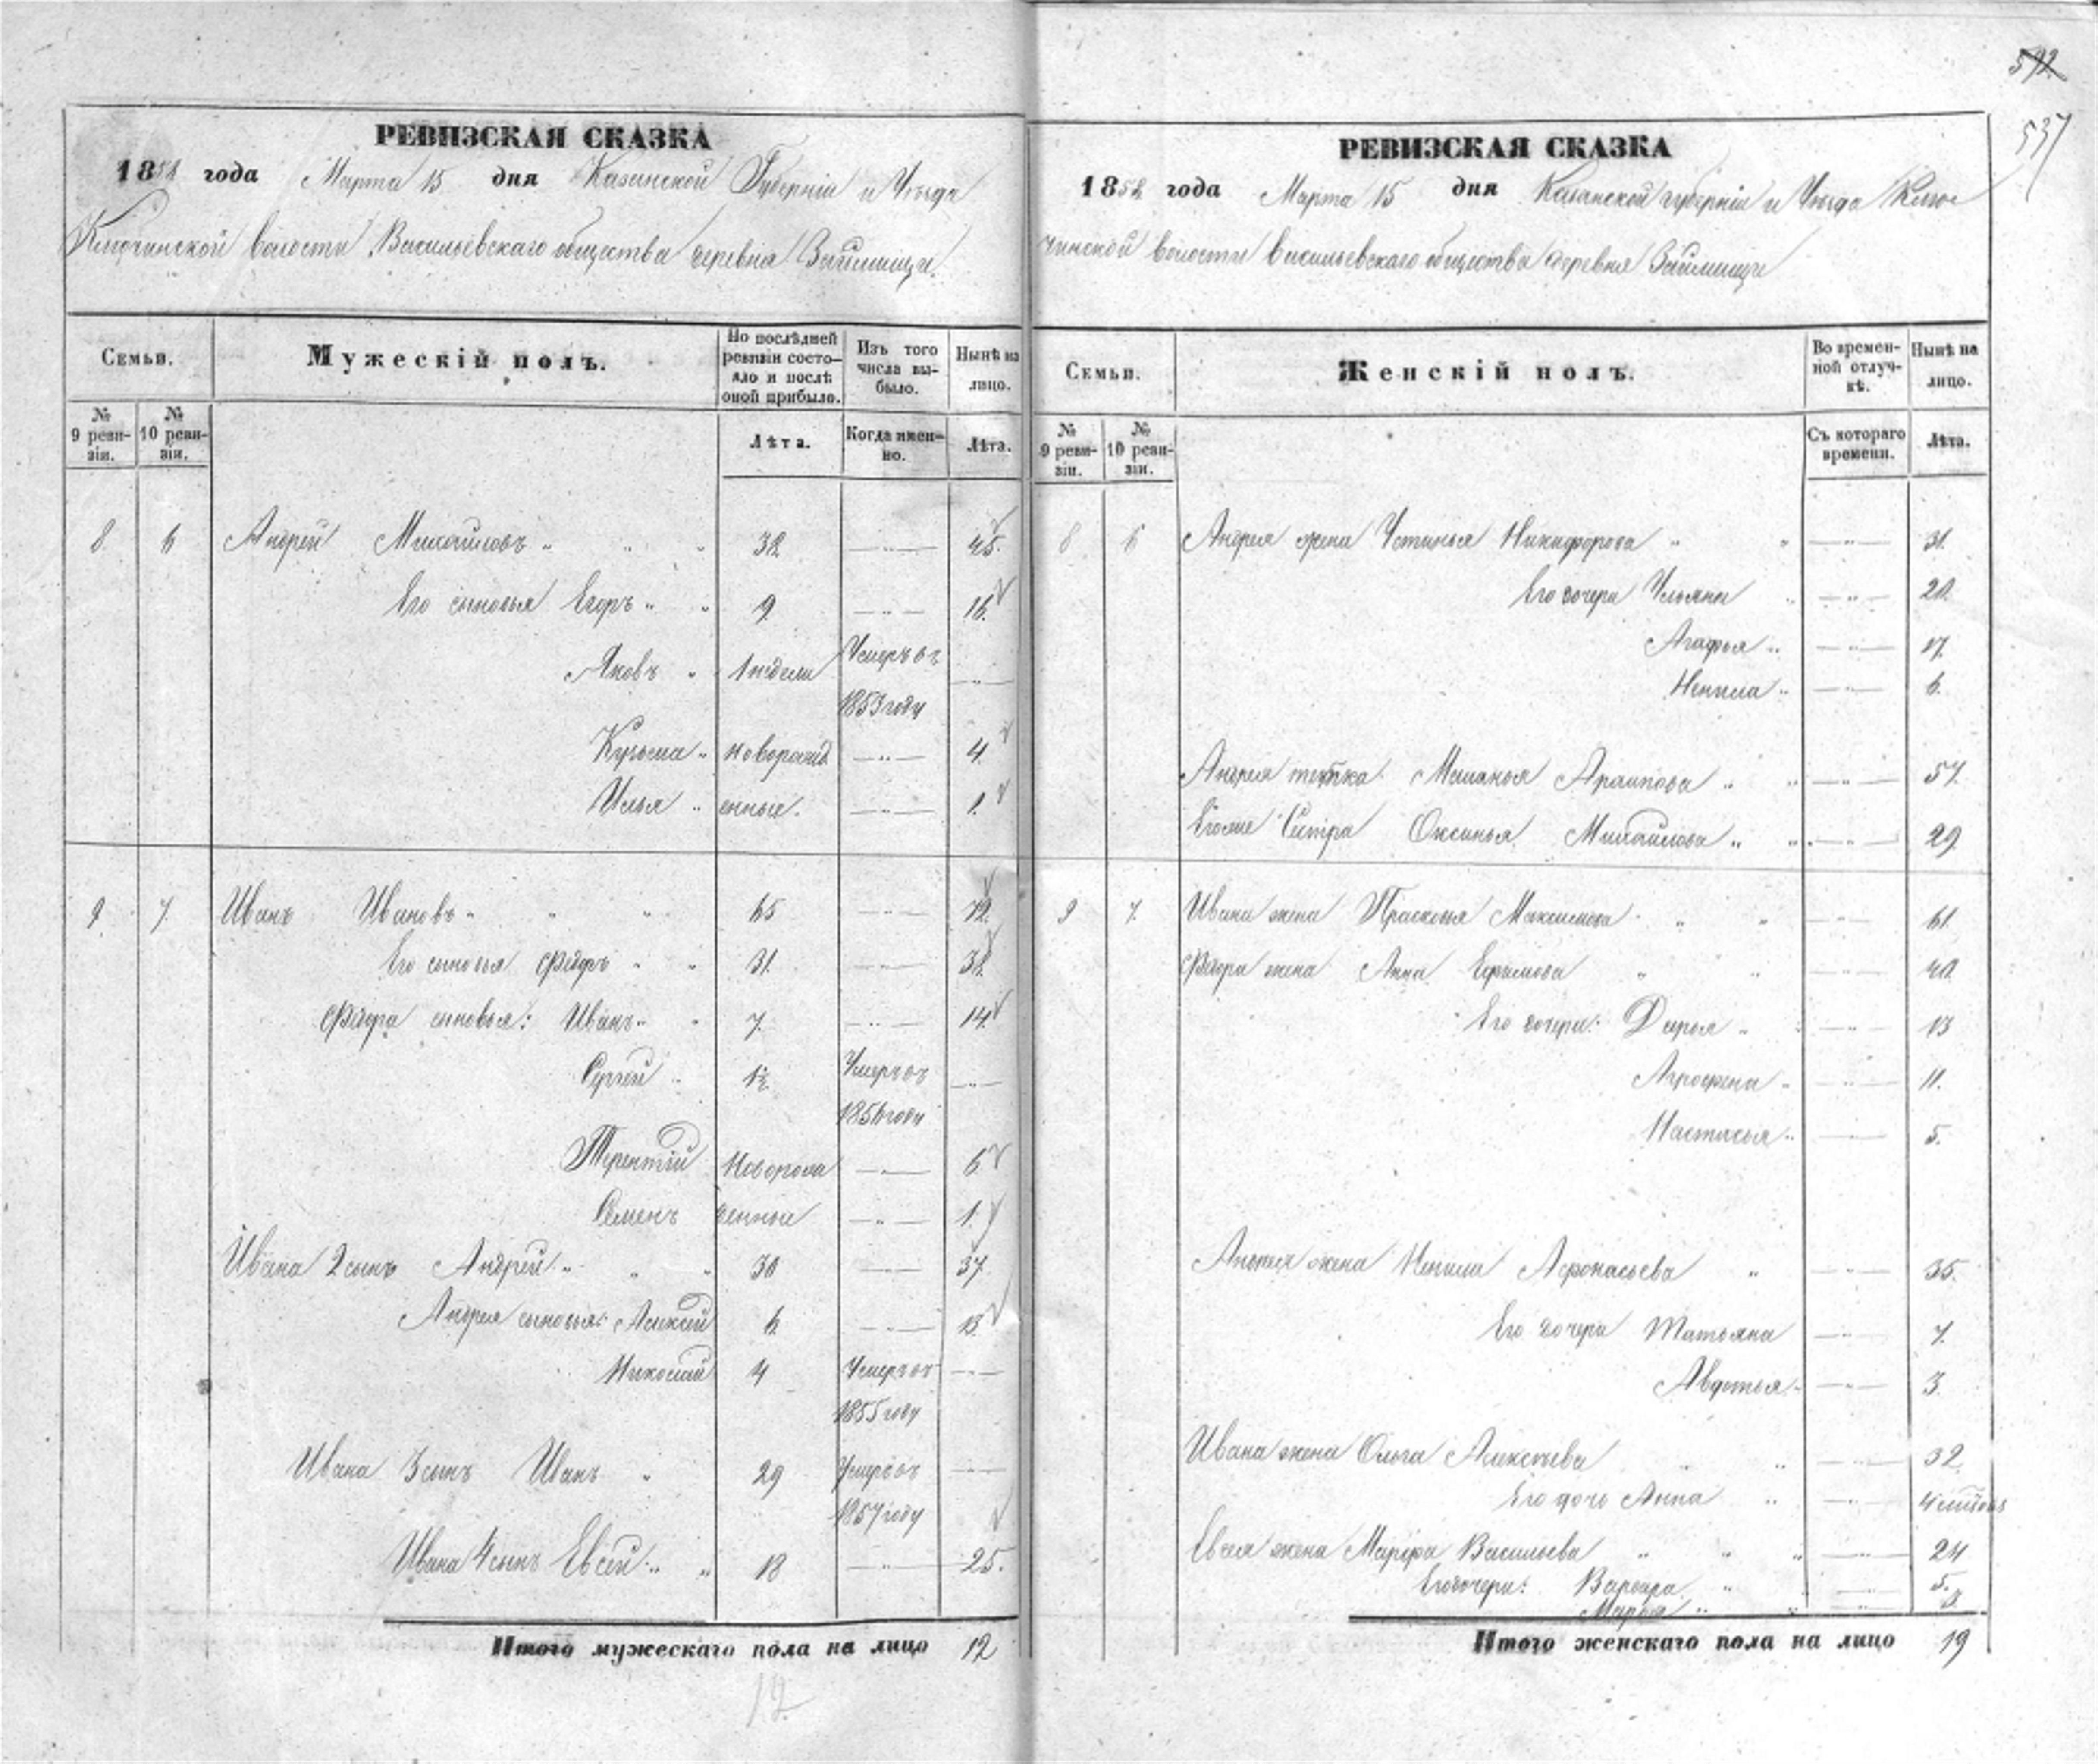 592
537
РЕВИЗСКАЯ СКАЗКА
1858 года Марта 15 дня Казанской Губернiи и Уѣзда
Ключинской волости Васильевскаго общества деревня Займища.
Семьи. Мужескiй полъ. По послѣдней ревизiи состояло и послѣ оной прибыло. Изъ того числа выбыло. Нынѣ на лицо.
№ 9 ревизiи. № 10 ревизiи. Лѣта. Когда именно. Лѣта.
8. 6 Андрей Михайловъ 38 45.
Его сыновья Егоръ 9. 16.
Яковъ 1 недели Умеръ въ 1853 году
Кузьма новорожд 4.
Илья енные. 1.
9. 7. Иванъ Ивановъ 65 72.
Его сыновья Фёдоръ 31. 38.
Фёдора сыновья: Иванъ 7. 14.
Сергей 1½ Умеръ въ 1856 году
Терентiй Новорож 6
Семенъ денные 1.
Ивана 2 сынъ Андрей 30 37
Андрея сыновья: Алексей 6. 13.
Николай 4 Умеръ въ 1855 году
Ивана 3 сынъ Иванъ 29 Умеръ въ 1857 году
Ивана 4 сынъ Евсей 18 25.
Итого мужескаго пола на лицо 12
12
РЕВИЗСКАЯ СКАЗКА
1858 года Марта 15 дня Казанской губернiи и Уѣзда Клю
чинской волости Васильевскаго общества деревня Займищи
Семьи. Женскiй полъ. Во временной отлучкѣ. Нынѣ на лицо.
№ 9 ревизiи. № 10 ревизiи. Съ котораго времени. Лѣта.
8 6 Андрея жена Устинья Никифорова 31.
Его дочери Ульяна 20.
Агафья 17.
Ненила 6.
Андрея тётка Маланья 57.
Егоже Сестра Оксинья Михайлова 29.
9 7. Ивана жена Прасковья Максимова 61.
Фёдора жена Анна Ефимова 40.
Его дочери: Дарья 13
Агрофена 11.
Настасья 5.
Андрея жена Ненила Афонасьева 35.
Его дочери Татьяна 7.
Авдотья 3.
Ивана жена Ольга Алексѣева 32.
Его дочь Анна
Евсея жена Марфа Васильева 24
Его дочери: Варвара 5.
Марья 3.
Итого женскаго пола на лицо 19